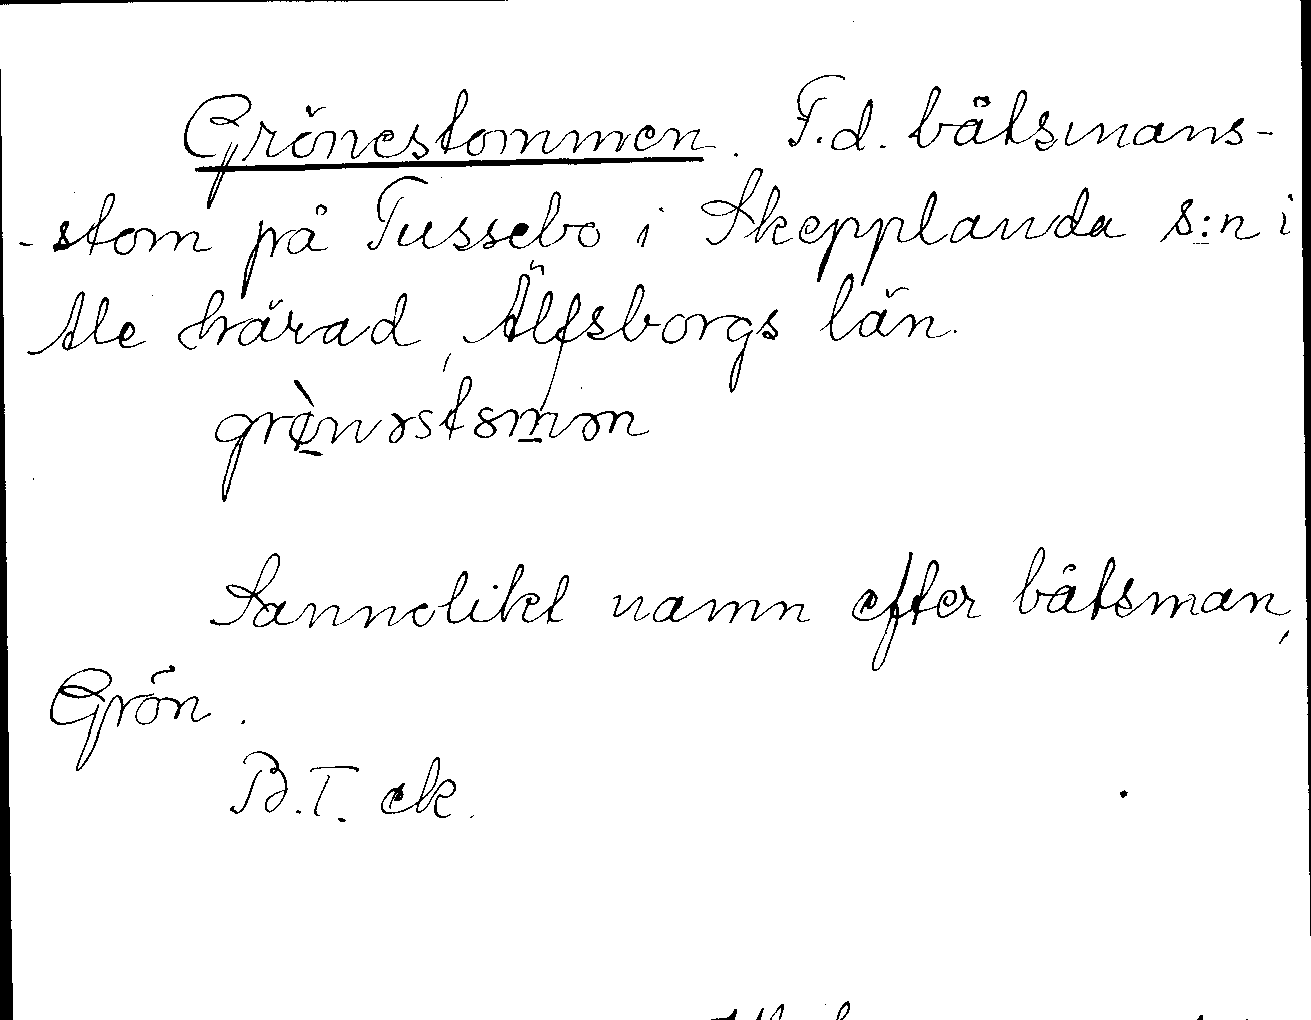 Grönestommen. F.d. båtsmans-
-stom på Tussebo i Skepplanda s:n i
Ale härad, Älfsborgs län.
Sannolikt namn efter båtsman,
Grön.
B.T. ek.